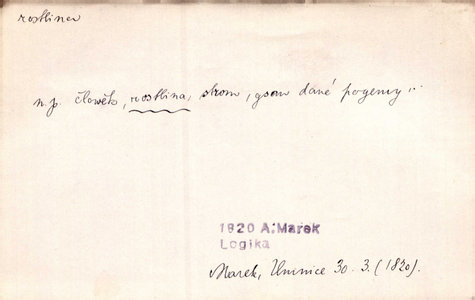 rostlina
n.p. člowěk, rostlina, strom, gsau dané pogemy...
1820 A.Marek
Logika
Marek, Umnice 30. 3. (1820).